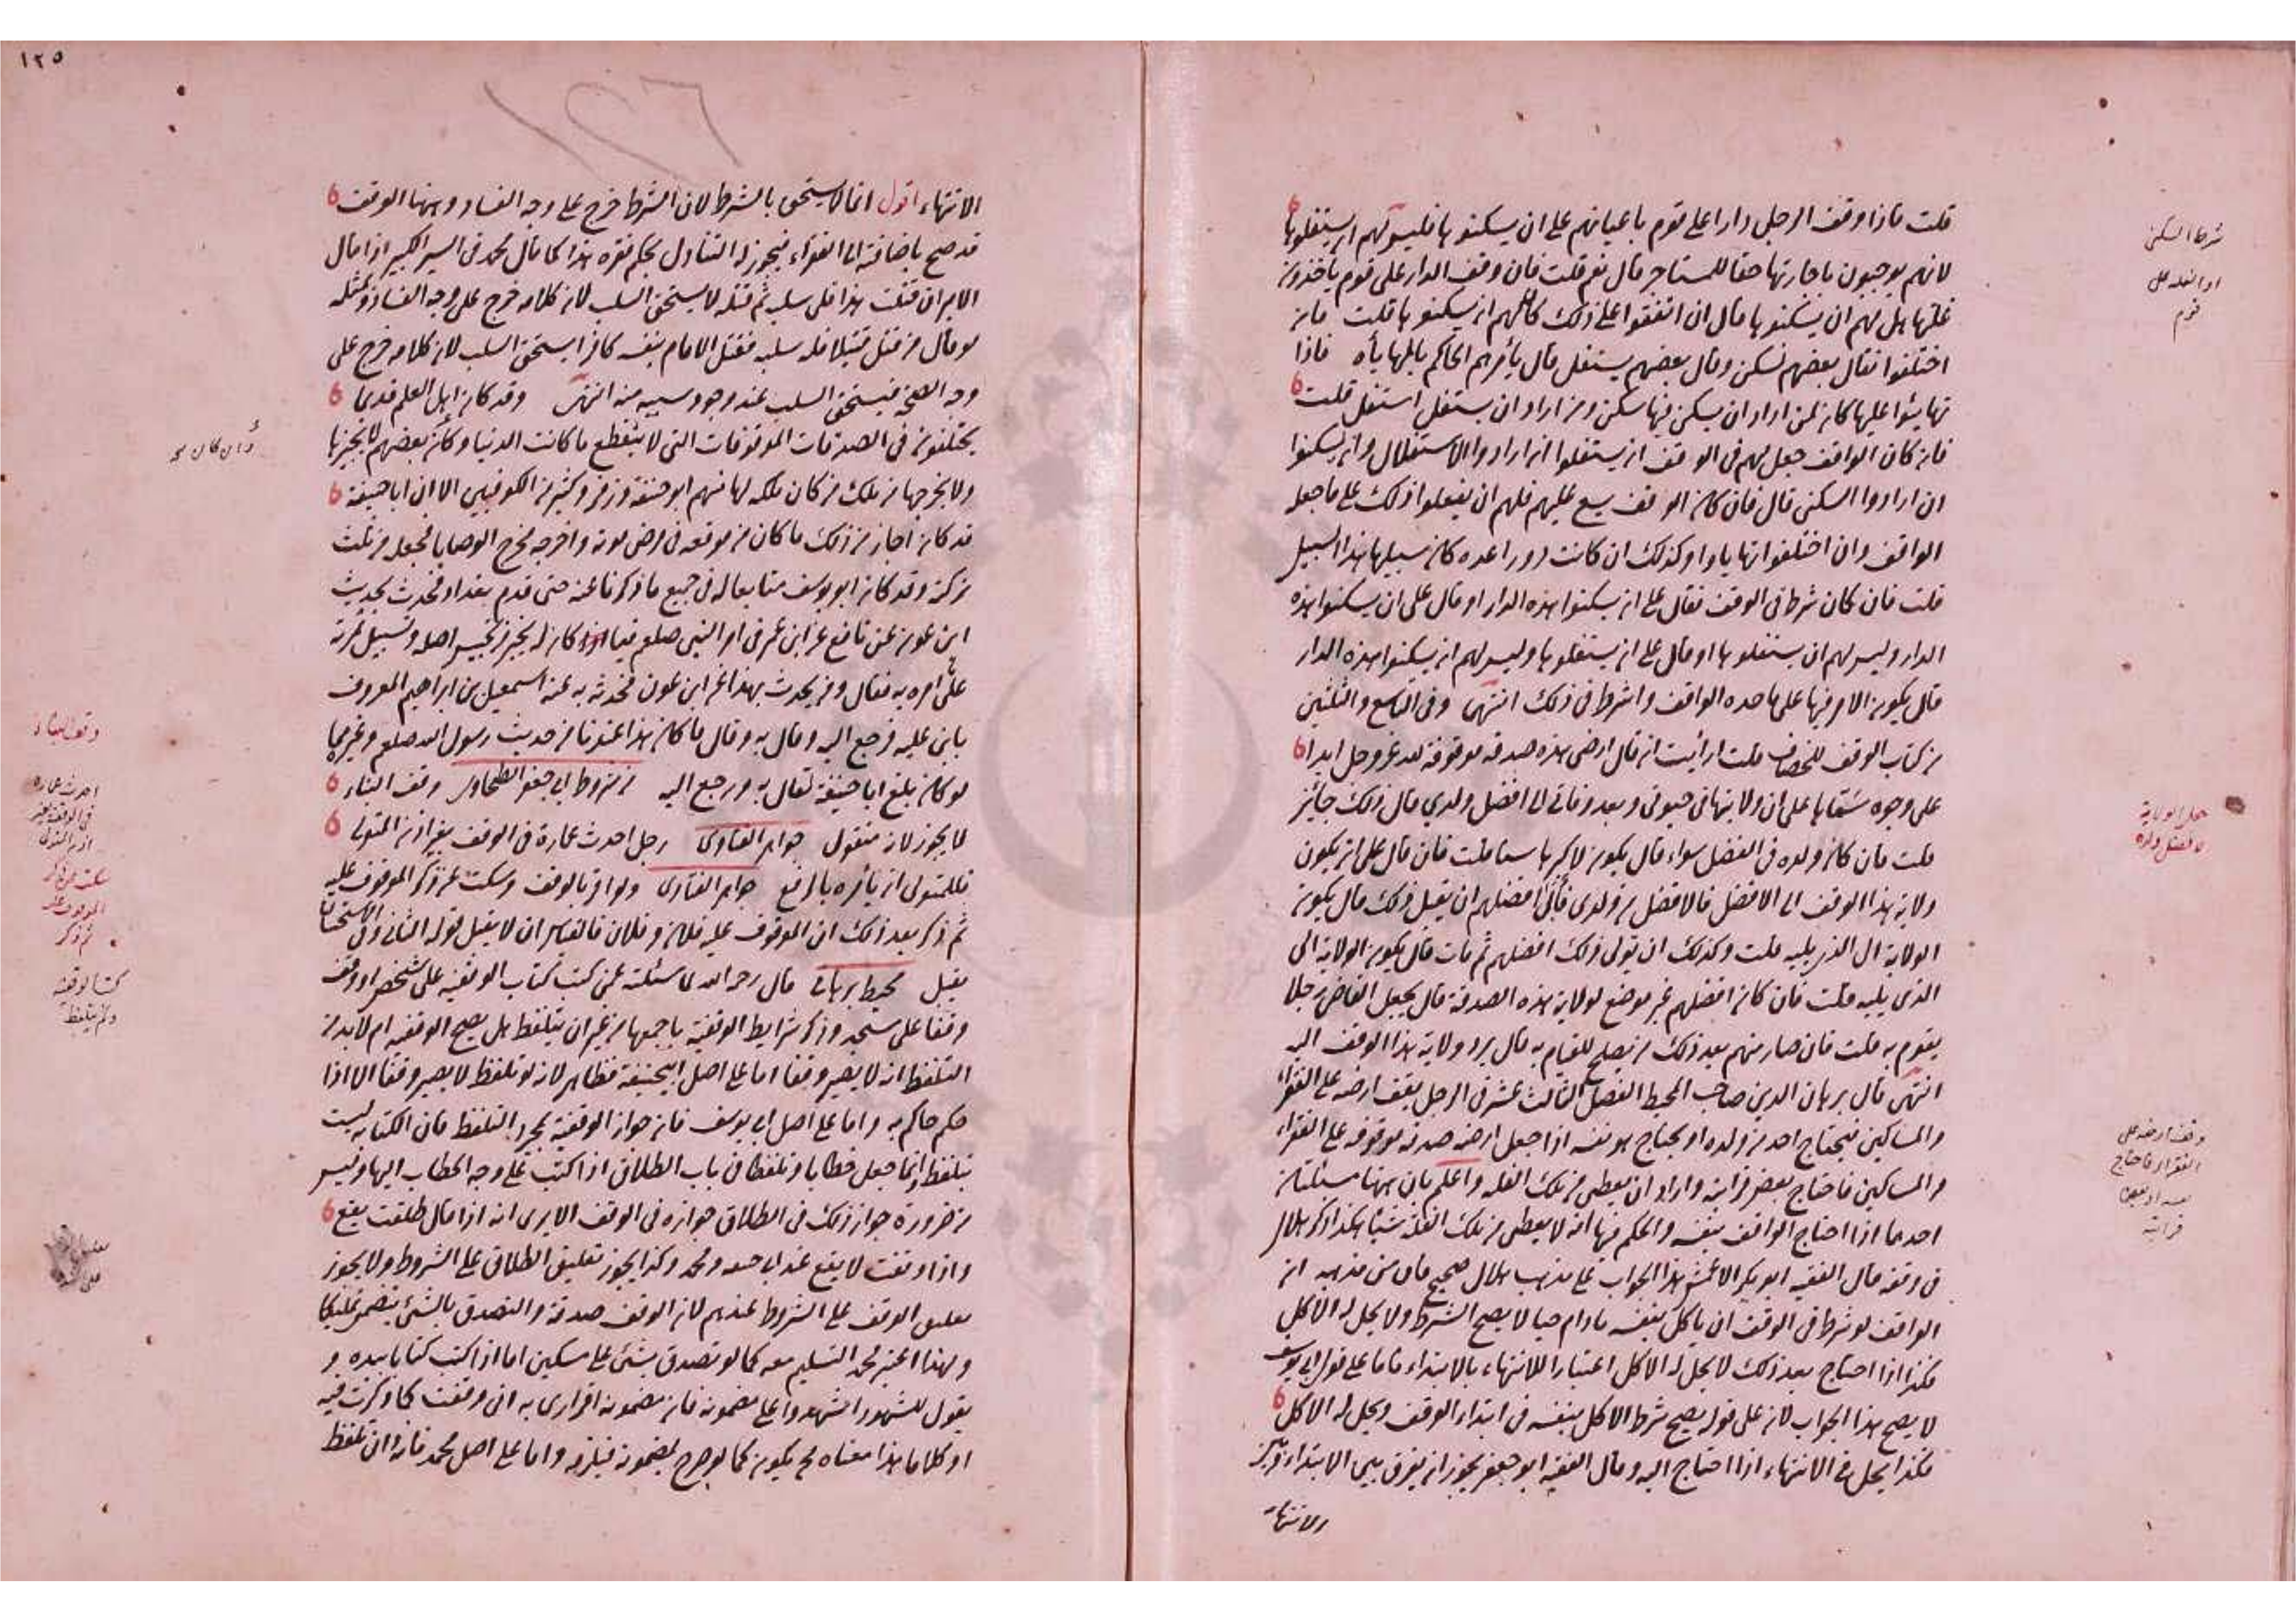 قلت فاذا وقف الرجل دارا على قوم باعيانهم على ان يسكنوها فليس لهم ان يستغلوها
لانهم يوجبون باجارتها حقا للمستاجر قال نعم قلت فان وقف الدار على قوم ياخذون
غلتها هل لهم ان يسكنوها قال ان اتفقوا على ذلك كلهم ان يسكنوها قلت فان
اختلفوا فقال بعضهم نسكن وقال بعضهم يستغل قال يأمرهم الحاكم بالمهايأه فاذا
تهايئوا عليها كان لمن اراد ان يسكن فيها سكن ومن اراد ان يستغل استغل قلت
فان كان الواقف جعل لهم فى الوقف ان يستغلوا ان ارادوا الاستغلال وان يسكنوا
ان ارادوا السكنى قال فان كان الوقف يسع عليهم فلهم ان يفعلوا ذلك على ما جعله
الواقف وان اختلفوا تهاياوا وكذلك ان كانت دورا عده كان سبيلها هذا السبيل
قلت فان كان شرط فى الوقف فقال على ان يسكنوا هذه الدار او قال على ان يسكنوا هذه
الدار وليس لهم ان يستغلوها او قال على ان يستغلوها وليس لهم ان يسكنوا هذه الدار
قال يكون الامر فيها على ما حده الواقف واشرط فى ذلك انتهى وفى التاسع والثلثين
من كتاب الوقف للخصاف قلت ارأيت ان قال ارضى هذه صدقه موقوفة لله عز وجل ابدا
على وجوه سماها على ان ولايتها فى حيوتى وبعد وفاتى الى افضل ولدي قال ذلك جائز
قلت فان كان ولده فى الفضل سواء قال يكون لاكبرها سنا قلت فان قال على ان يكون
ولاية هذا الوقف الى الافضل فالافضل من ولدى فأبى افضلهم ان يقبل ذلك قال يكون
الولاية الى الذى يليه قلت وكذلك ان تولى ذلك افضلهم ثم مات قال يكون الولاية الى
الذى يليه قلت فان كان افضلهم غير موضع لولاية هذه الصدقة قال يجعل القاضى رجلا
يقوم به قلت فان صار منهم بعد ذلك من يصلح للقيام به قال يرد ولاية هذا الوقف اليه
انتهى قال برهان الدين صاحب المحيط الفصل الثالث عشر فى الرجل يقف ارضه على الفقراء
والمساكين فيحتاج احد من ولده او يحتاج هو نفسه اذا جعل ارضه صدقه موقوفه على الفقراء
والمساكين فاحتاج بعض قرابته واراد ان يعطى من تلك الغله واعلم بان ههنا مسئلتان
احدهما اذا احتاج الواقف بنفسه والحكم فيها انه لا يعطى من تلك الغلة شيئا هكذا ذكر هلال
فى وقفه قال الفقيه ابو بكر الاعمش هذا الجواب على مذهب هلال صحيح فان من مذهبه ان
الواقف لو شرط فى الوقف ان ياكل بنفسه مادام حيا لا يصح الشرط ولا يحل له الاكل
فكذا اذا احتاج بعد ذلك لا يحل له الاكل اعتبارا للانتهاء بالابتداء فاما على قول ابى يوسف
لا يصح هذا الجواب لان على قوله يصح شرط الاكل بنفسه فى ابتداء الوقف ويحل له الاكل
فكذا يحل فى الانتهاء اذا احتاج اليه وقال الفقيه ابو جعفر يجوز ان يفرق بين الابتداء وبين
الانتهاء
شرط السكنى
او الغله على
قوم
جعل الولاية
لافضل ولده
وقف ارضه على
الفقراء فاحتاج
بنفسه او بعض
قرابته
١٢٥
١٢٦
الانتهاء اقول انما لا يستحق بالشرط لان الشرط خرج على وجه الفساد وههنا الوقف
قد صح باضافته الى الفقراء فيجوز له التناول بحكم فقره هذا كما قال محمد فى السير الكبير اذا قال
الامير ان قتلت هذا فلى سلبه ثم قتله لا يستحق السلب لان كلامه خرج على وجه الفساد وبمثله
لو قال من قتل قتيلا فله سلبه فقتل الامام بنفسه كافرا يستحق السلب لان كلامه خرج على
وجه الصحة فيستحق السلب عند وجود سببه منه انتهى وقد كان اهل العلم قديما
يختلفون فى الصدقات الموقوفات التى لا ينقطع ما كانت الدنيا وكان بعضهم لا يجيزها
ولا يخرجها من ملك من كان ملكه لها منهم ابو حنيفة وزفر وكثير من الكوفيين الا ان ابا حنيفة
قد كان اجاز من ذلك ما كان من موقعه فى مرض موته واخرجه مخرج الوصايا فجعله من ثلث
تركته وقد كان ابو يوسف متابعا له فى جميع ما ذكرنا عنه حتى قدم بغداد فحدث بحديث
ابن عون عن نافع عن ابن عمر فى امر النبى صلعم فيما كان له بخيبر تحبيس اصله وتسبيل ثمرته
على امره به فقال ومن يحدث بهذا عن ابن عون فحدثه به عنه اسمعيل بن ابراهيم المعروف
بابن عليه فرجع اليه وقال به وقال ما كان هذا عندنا من حديث رسول الله صلعم وغيره مما
لو كان بلغ ابا حنيفة لقال به ورجع اليه من شروط ابى جعفر الطحاوى وقف البناء
لا يجوز لانه منقول جواهر الفتاوى رجل احدث عمارة فى الوقف بغير اذن المتولى
فللمتولى ان يأمره بالرفع جواهر الفتاوى ولو اقر بالوقف وسكت عن ذكر الموقوف عليه
ثم ذكر بعد ذلك ان الموقوف عليه فلان وفلان فالقياس ان لا يقبل قوله الثانى وفى الاستحسان
يقبل محيط برهانى قال رحمه الله لما سئلته عمن كتب كتاب الوقفيه على شخص او وقف
وقفا على مسجد وذكر شرايط الوقفية باجمعها من غير ان يتلفظ هل يصح الوقفيه ام لا بد من
التلفظ انه لا يصير وقفا اما على اصل ابى حنيفة فظاهر لانه لو تلفظ لا يصير وقفا الا اذا
حكم حاكم به واما على اصل ابى يوسف فان جواز الوقفية بمجرد التلفظ فان الكتابه ليست
بتلفظ وانما جعل خطابا وتلفظا فى باب الطلاق اذا كتب على وجه الخطاب اليها وليس
من ضرورة جواز ذلك فى الطلاق جوازه فى الوقف الا يرى انه اذا قال طلقت يقع
واذا وقفت لا يقع عند ابى حنيفه ومحمد وكذا يجوز تعليق الطلاق على الشروط ولا يجوز
تعليق الوقف على الشروط عندهم لان الوقف صدقة والتصدق بالشئ يتضمن تمليكا
ولهذا اعتبر محمد التسليم معه كما لو تصدق بشئ على مسكين اما اذا كتب كتابا بيده و
يقول للشهود اشهدوا على مضمونه فان مضمونه اقرارى به انى وقفت كما ذكرت فيه
او كلاما هذا معناه مح يكون كما لو صرح بمضمونه فيلزمه واما على اصل محمد فانه وان تلفظ
وان كان
وقف البناء
احدث عماره
فى الوقف بغير
اذن المتولى
سكت عن ذكر
الموقوف عليه
ثم ذكر
كتب الوقفيه
ولم يتلفظ